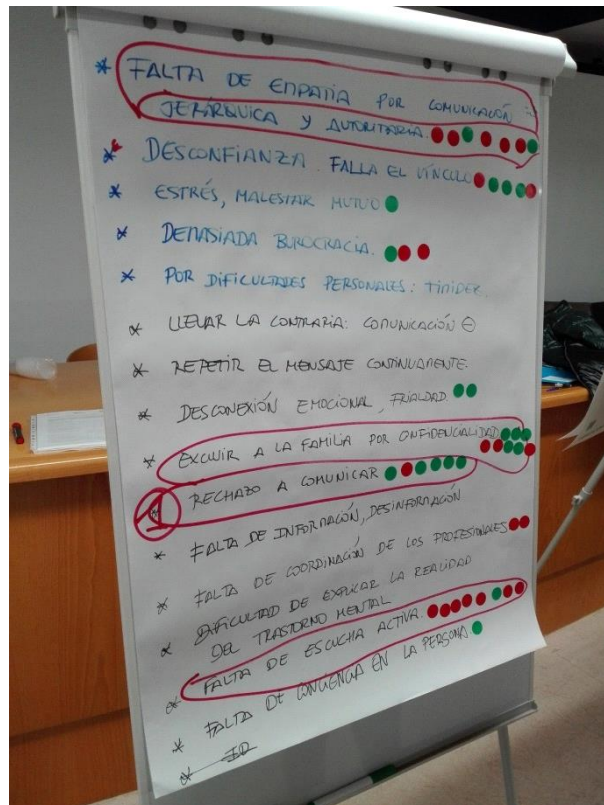 * FALTA DE EMPATIA POR COMUNICACIÓN
JERÁRQUICA Y AUTORITARIA.
* DESCONFIANZA. FALLA EL VÍNCULO
* ESTRÉS, MALESTAR MUTUO
* DEMASIADA BUROCRACIA.
* POR DIFICULTADES PERSONALES: TIMIDEZ.
* LLEVAR LA CONTRARIA: COMUNICACIÓN ⊖
* REPETIR EL MENSAJE CONTINUAMENTE.
* DESCONEXIÓN EMOCIONAL, FRIALDAD
* EXCLUIR A LA FAMILIA POR CONFIDENCIALIDAD
* RECHAZO A COMUNICAR
* FALTA DE INFORMACIÓN, DESINFORMACIÓN
* FALTA DE COORDINACIÓN DE LOS PROFESIONALES
* DIFICULTAD DE EXPLICAR LA REALIDAD
DEL TRASTORNO MENTAL
* FALTA DE ESCUCHA ACTIVA.
* FALTA DE CONCIENCIA EN LA PERSONA
*